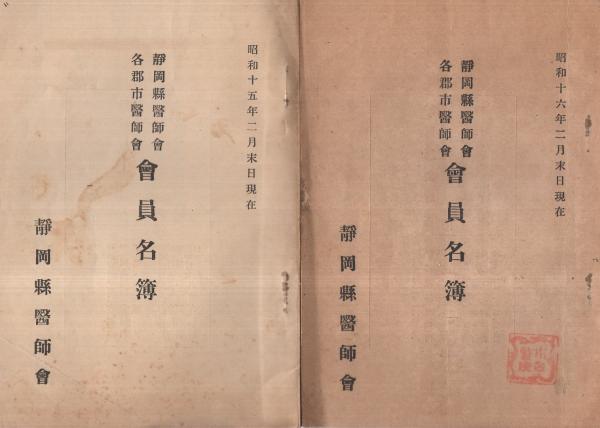 昭和十六年二月末日現在
靜岡縣醫師會
各郡市醫師會
會員名簿
靜岡縣醫師會
昭和十五年二月末日現在
靜岡縣醫師會
各郡市醫師會
會員名簿
靜岡縣醫師會